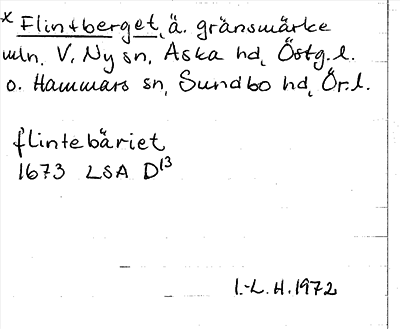 × Flintberget, ä. gränsmärke
mln. V. Ny sn, Aska hd, Östg.l.
o. Hammars sn, Sundbo hd, Ör.l.
flintebäriet
1673 LSA D13
I.-L. H. 1972